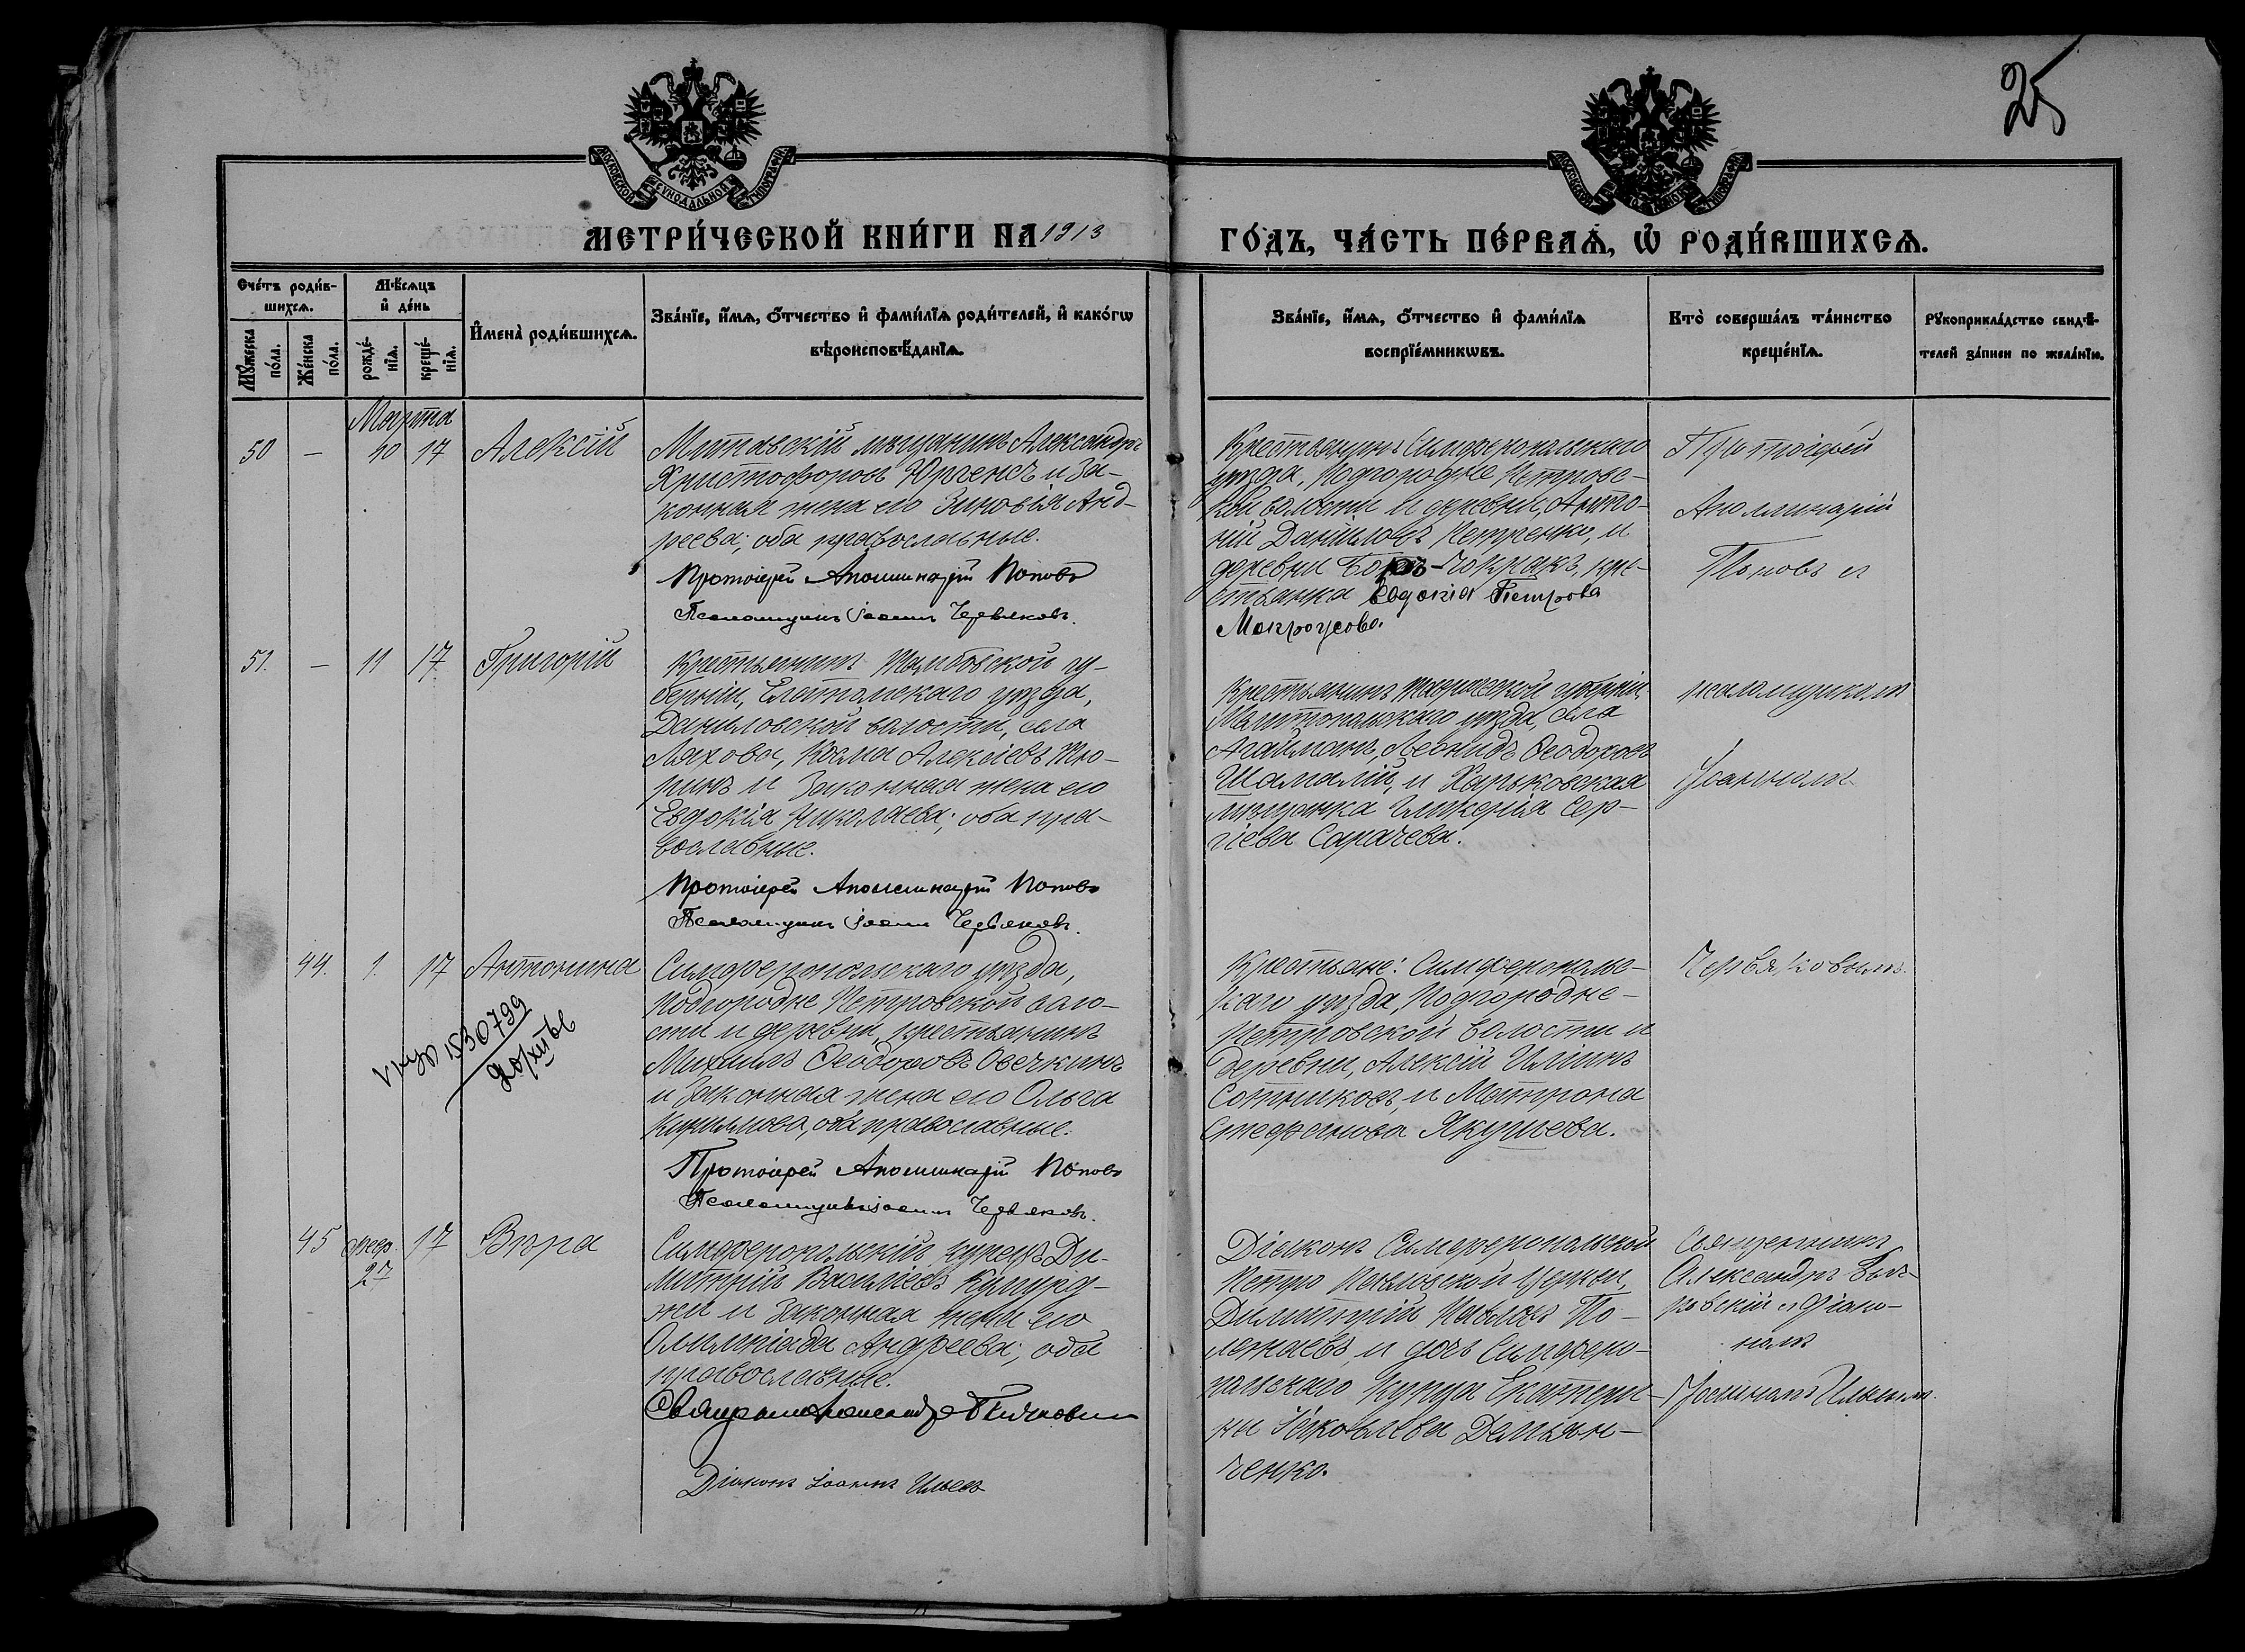 25
МОСКОВСКОЙ СѴНОДАЛЬНОЙ ТИПОГРАФІИ
МОСКОВСКОЙ СѴНОДАЛЬНОЙ ТИПОГРАФІИ
МЕТРИ́ЧЕСКОЙ КНИ́ГИ НА 1913 ГО́ДЪ, ЧА́СТЬ ПЕ́РВАѦ, Ѡ҆ РОДИ́ВШИХСѦ.
Сче́тъ роди́в-
шихсѧ.
Мꙋ́жеска по́ла.
Же́нска по́ла.
Мѣ́сѧцъ
и҆ де́нь
рожде́-
нїѧ.
креще́-
нїѧ.
И҆мена̀ роди́вшихсѧ.
Зва́нїе, и҆́мѧ, ѻ҆́тчество и҆ фами́лїѧ роди́телей, и҆ како́гѡ
вѣроисповѣ́данїѧ.
Зва́нїе, и҆́мѧ, ѻ҆́тчество и҆ фами́лїѧ
воспрїе́мникѡвъ.
Кто̀ соверша́лъ та́инство
креще́нїѧ.
Рꙋкоприкла́дство свидѣ́-
телей за́писи по жела́нїю.
Марта
50 — 10 17 Алексій
Митавскій мѣщанинъ Александръ
Христофоровъ Юргенсъ и за-
конная жена его Зиновія Анд-
реева; оба православные.
Протоіерей Аполлинарій Поповъ
Псаломщикъ Іоаннъ Червяковъ.
Крестьянинъ Симферопольскаго
уѣзда, Подгородне Петровс-
кой волости и деревни, Анто-
ній Даниловъ Петренко, и
деревни -Чокракъ, кре-
стьянка Евдокія Петрова
Мокроусова.
Протоіерей
Аполлинарій
Поповъ и
51. — 11 17. Григорій
Крестьянинъ Тамбовской гу-
берніи, Елатомскаго уѣзда,
Даниловской волости, села
Ляхова, Косма Алексіевъ Тю-
ринъ и законная жена его
Евдокія Николаева; оба пра-
вославные.
Протоіерей Аполлинарій Поповъ
Псаломщикъ Іоаннъ Червяковъ.
Крестьянинъ Таврической губерніи,
Мелитопольскаго уѣзда, села
Агайманъ, Леонидъ Ѳеодоровъ
Шамалій, и Харьковская
мѣщанка Гликерія Сер-
гіева Сарачева.
псаломщикомъ
Іоанномъ
44. 1. 17 Антонина
1530799
Симферопольскаго уѣзда,
Подгородне Петровской воло-
сти и деревни, крестьянинъ
Михаилъ Ѳеодоровъ Овечкинъ
и законная жена его Ольга
Кириллова, оба православные.
Протоіерей Аполлинарій Поповъ
Псаломщикъ Іоаннъ Червяковъ.
Крестьяне: Симферополь-
скаго уѣзда, Подгородне-
Петровской волости и
деревни, Алексій Иліинъ
Сотниковъ, и Матрона
Стефанова Якушева.
Червяковымъ.
45 Февр. 27 17 Вѣра
Симферопольскій купецъ Ди-
митрій Василіевъ
и законная жена его
Олимпіада Андреева; оба
православные.
Діаконъ Іоаннъ Ильевъ
Діаконъ Симферопольской
Петро Павловской церкви,
Димитрій Павловъ По-
лежаевъ, и дочь Симферо-
польскаго купца Екатери-
на Яковлева Демьян-
ченко.
Священникъ
Александръ
и діако-
номъ
Іоанномъ Ильевымъ.